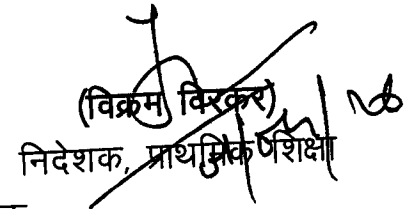 (विक्रम विरकर)
निदेशक, प्राथमिक शिक्षा